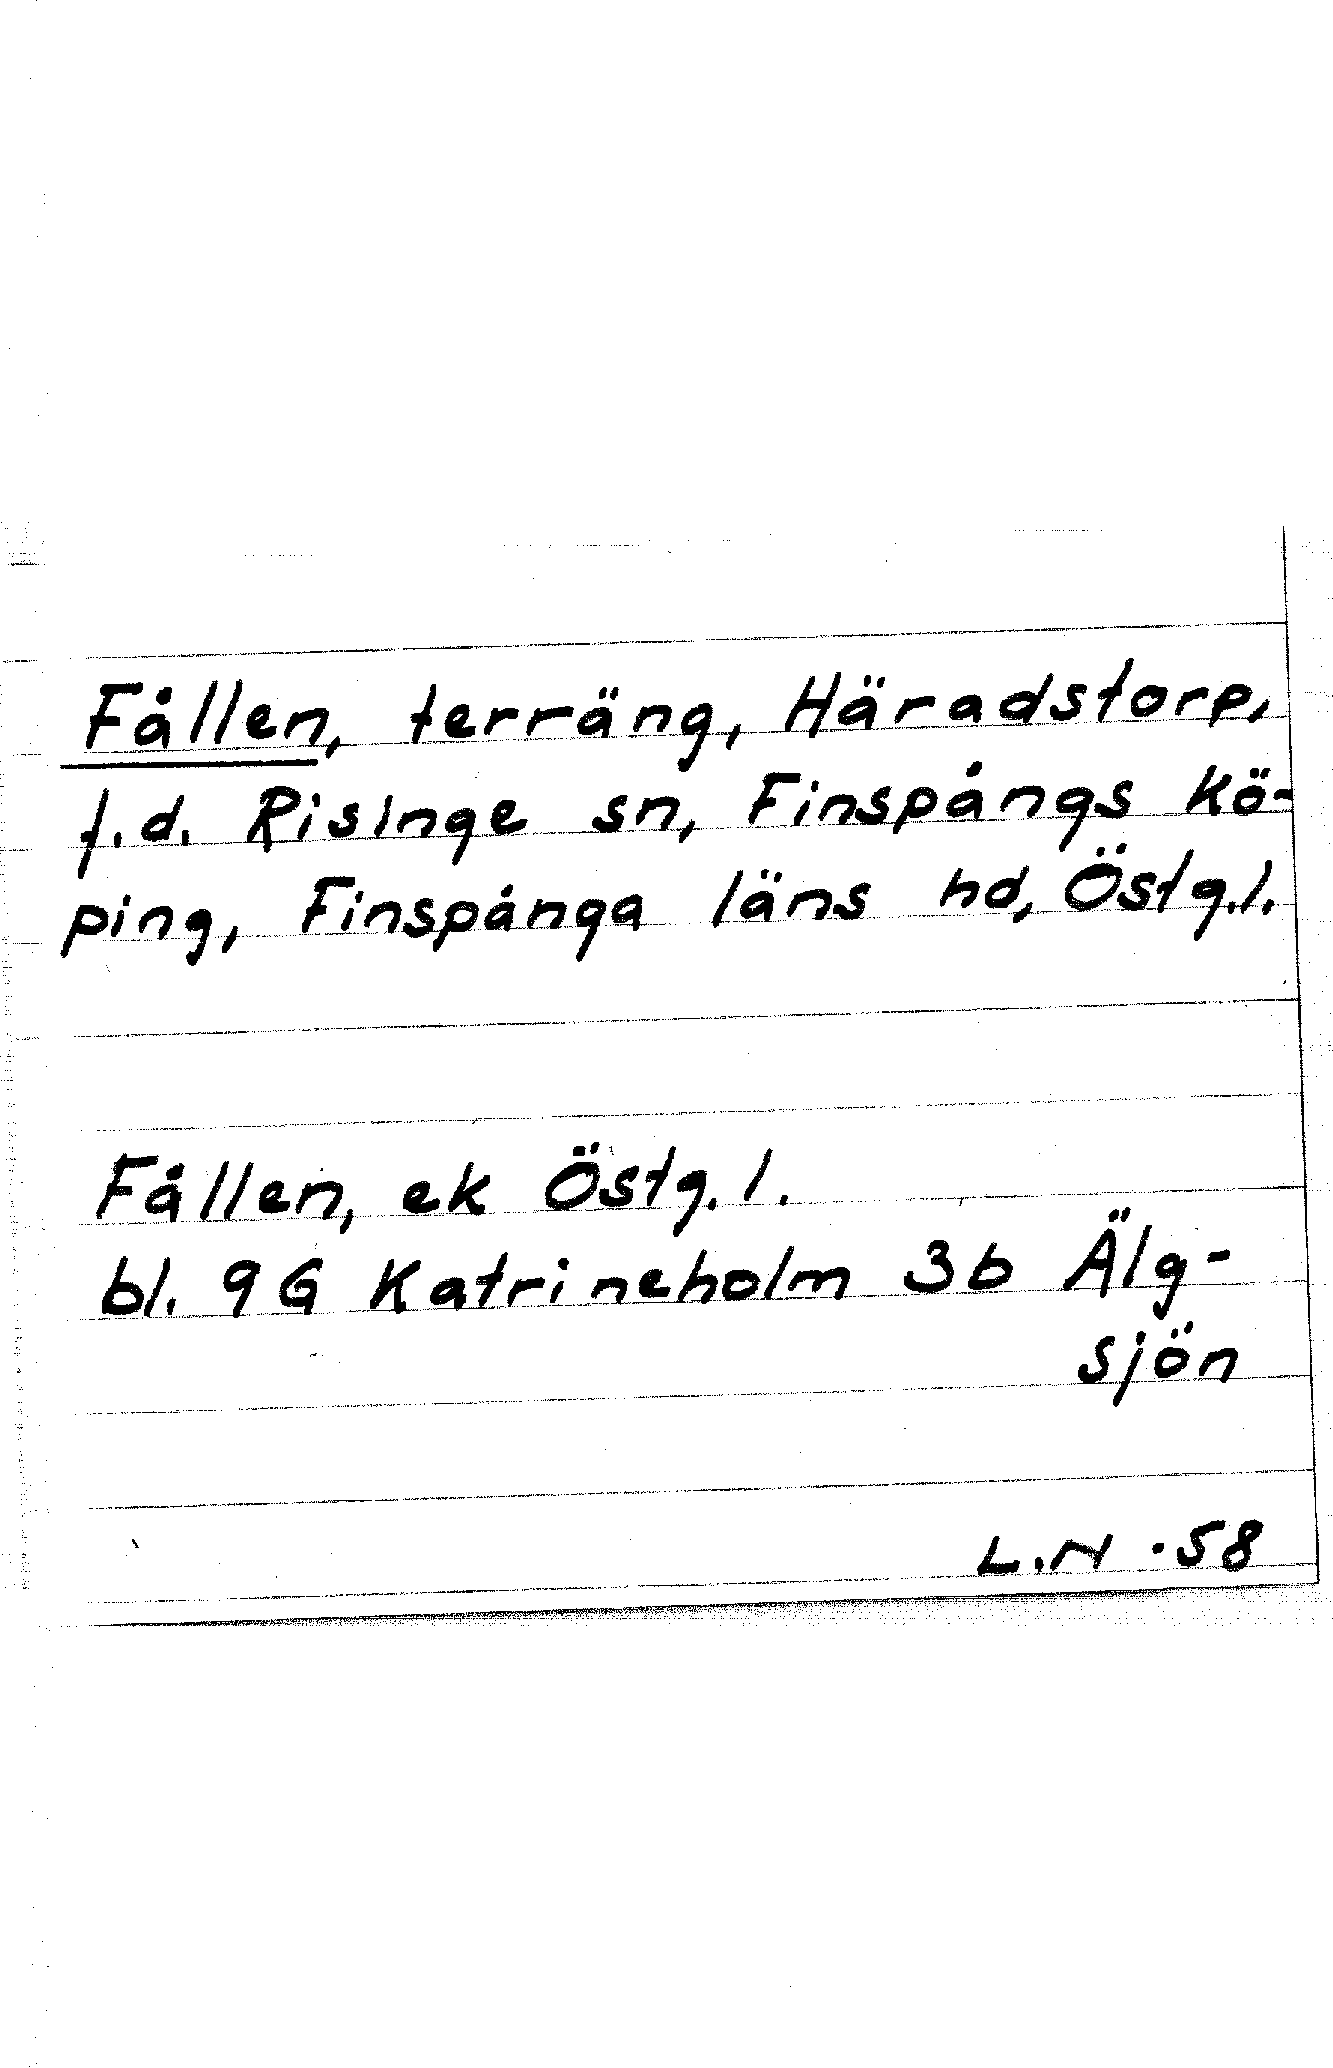 Fållen, terräng, Häradstorp,
f.d. Risinge sn, Finspångs kö-
ping, Finspånga läns hd, Östg.l.
Fållen, ek Östg.l.
bl. 9G Katrineholm 3b Älg-
sjön
L.N -58